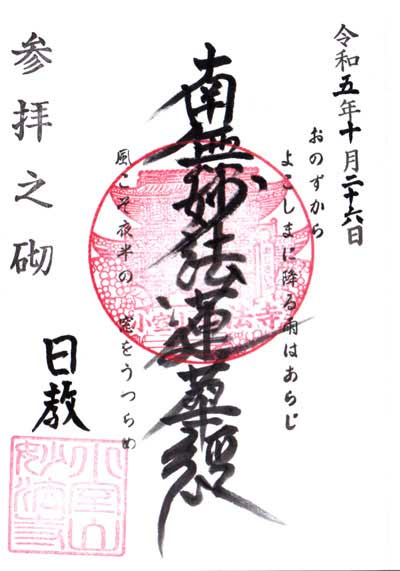 令和五年十月二十六日
おのずから
よこしまに降る雨はあらじ
南無妙法蓮華経
風こそ夜半の 窓をうつらめ
参拝之砌
日教
小室山妙法寺
小室山
妙法寺